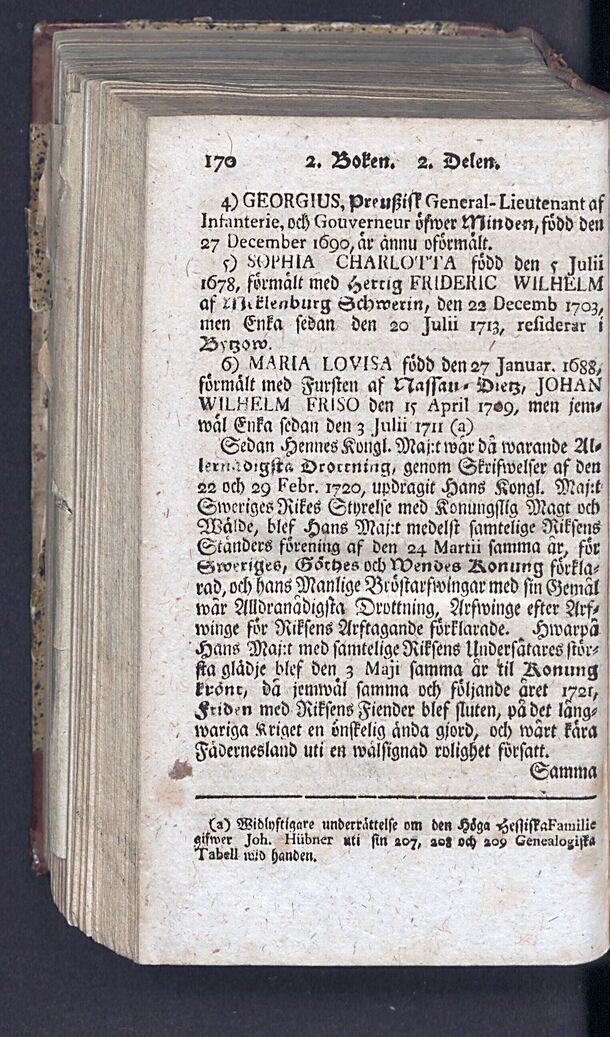 170 2. Boken. 2. Delen.
4) GEORGIUS, Preußisk General-Lieutenant af
Infanterie, och Gouverneur öfwer Minden, född den
27 December 1690, är ännu oförmält.
5) SOPHIA CHARLOTTA född den 5 Julii
1678, förmält med Hertig FRIDERIC WILHELM
af Meklenburg Schwerin, den 22 Decemb 1703,
men Enka sedan den 20 Julii 1713, residerar i
Bytzow.
6) MARIA LOVISA född den 27 Januar. 1688,
förmält med Fursten af Nassau-Dietz, JOHAN
WILHELM FRISO den 15 April 1709, men jem-
wäl Enka sedan den 3 Julii 1711 (a)
Sedan Hennes Kongl. Maj:t wår då warande Al-
lernådigsta Drottning, genom Skrifwelser af den
22 och 29 Febr. 1720, updragit Hans Kongl. Maj:t
Sweriges Rikes Styrelse med Konungslig Magt och
Wälde, blef Hans Maj:t medelst samtelige Riksens
Ständers förening af den 24 Martii samma år, för
Sweriges, Göthes och Wendes Konung förkla-
rad, och hans Manlige Bröstarfwingar med sin Gemål
wår Alldranådigsta Drottning, Arfwinge efter Arf-
winge för Riksens Arftagande förklarade. Hwarpå
Hans Maj:t med samtelige Riksens Undersåtares stör-
sta glädje blef den 3 Maji samma år til Konung
krönt, då jemwäl samma och följande året 1721,
Friden med Riksens Fiender blef sluten, på det lång-
wariga Kriget en önskelig ända gjord, och wårt kära
Fädernesland uti en wälsignad rolighet försatt.
Samma
(a) Widlyftigare underrättelse om den Höga Hessiska Familie
gifwer Joh. Hübner uti sin 207, 208 och 209 Genealogiska
Tabell wid handen.